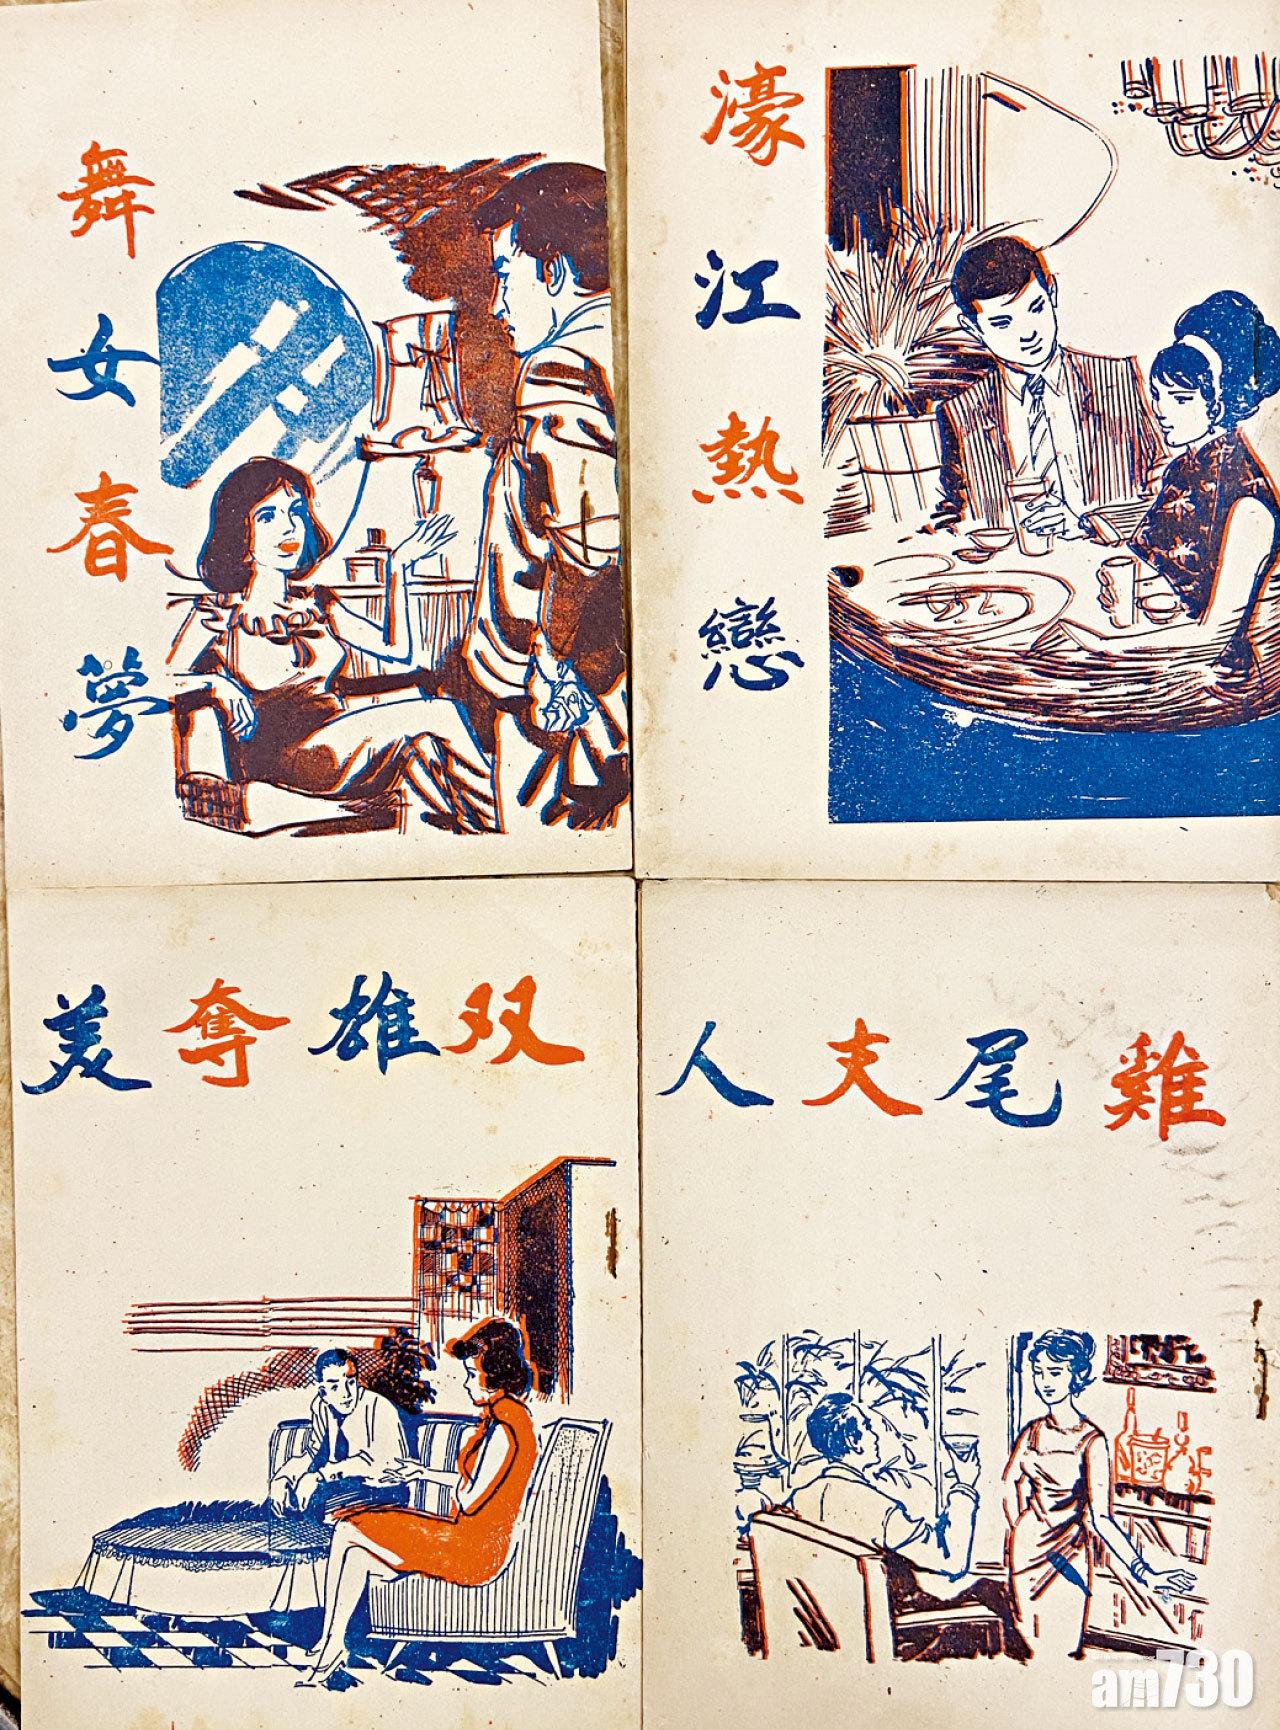 舞女春夢
濠江熱戀
双雄奪美
雞尾夫人
am730